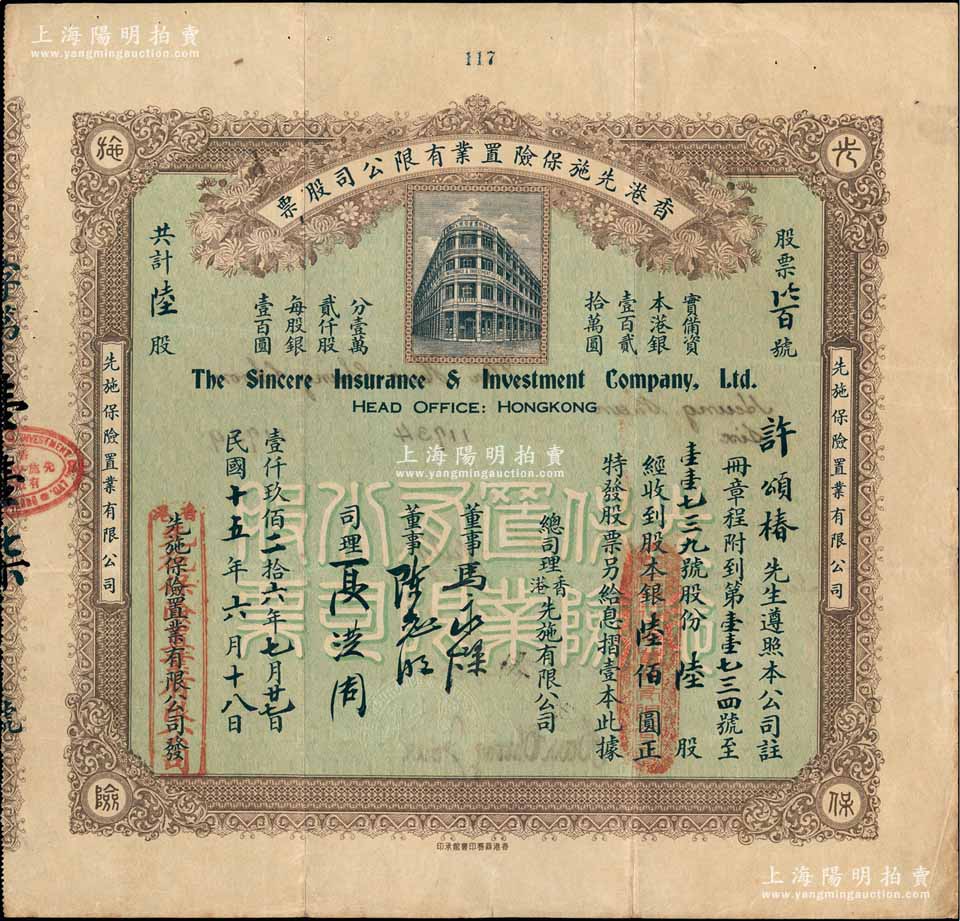 上海陽明拍賣
www.yangmingauction.com
117
香港先施保險置業有限公司股票
先
施
保
險
股票 號
實備資
本港銀
壹百貳
拾萬圓
分壹萬
貳仟股
每股銀
壹百圓
共計陸股
The Sincere Insurance & Investment Company, Ltd.
HEAD OFFICE: HONGKONG
許頌椿先生遵照本公司註
冊章程附到第壹壹七三四號至
壹壹七三九號股份陸股
經收到股本銀陸佰圓正
特發股票另給息摺壹本此據
總司理香港先施有限公司
董事馬永燦
董事陳
司理 洪周
壹仟玖佰二拾六年七月廿七日
民國十五年六月十八日
香港
先施保險置業有限公司發
先施保險置業有限公司
先施保險置業有限公司
保險置業有限公司股票
11734
上海陽明拍賣
www.yangmingauction.com
香港商務印書館承印
上海陽明拍賣
www.yangmingauction.com